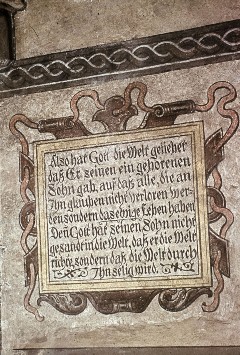 Also hat Gott die Welt geliebet
daß Er seinen ein gebornen
Sohn gab, auf daß alle, die an
Ihn glauben nicht verloren wer-
den sondern das ewige Leben haben
Den Gott hat seinen Sohn nicht
gesandt in die Welt, daß er die Welt
richte, sondern daß die Welt durch
Ihn selig wird.